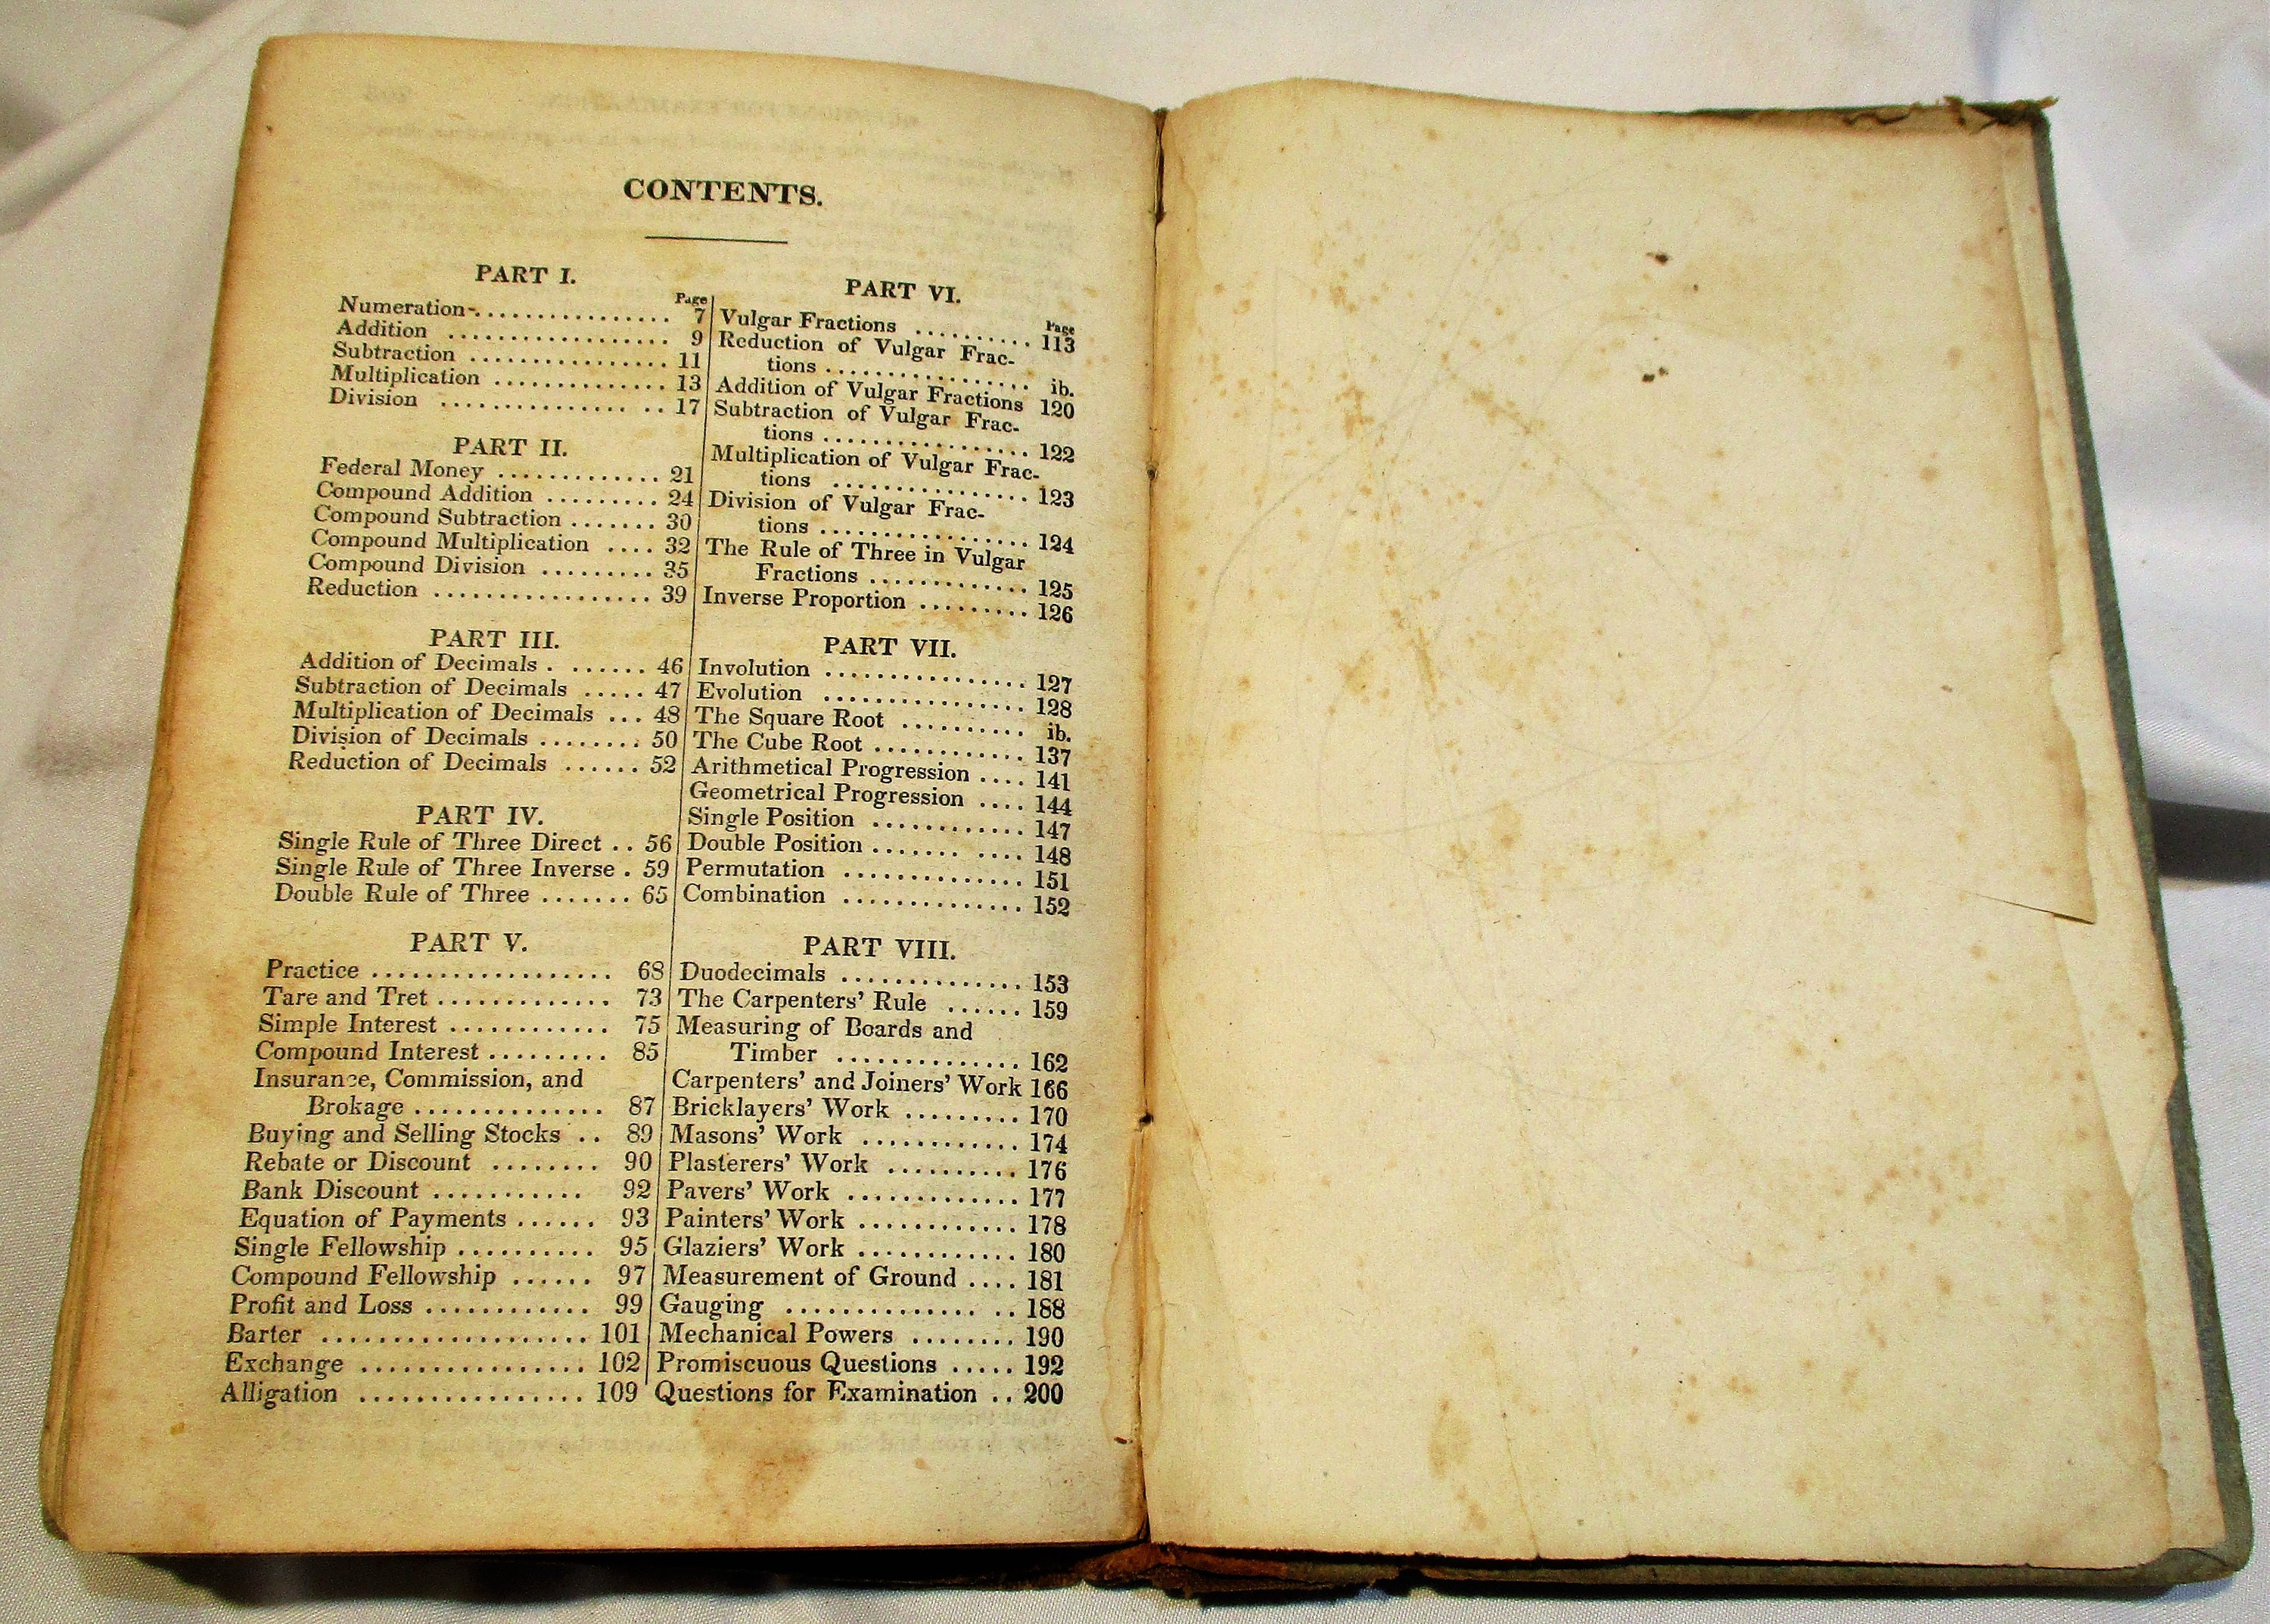 CONTENTS.
PART I.
Page
Numeration-................ 7
Addition .................. 9
Subtraction ................ 11
Multiplication .............. 13
Division ............... .. 17
PART II.
Federal Money ............. 21
Compound Addition ......... 24
Compound Subtraction ....... 30
Compound Multiplication .... 32
Compound Division ......... 35
Reduction ................. 39
PART III.
Addition of Decimals . ....... 46
Subtraction of Decimals ..... 47
Multiplication of Decimals ... 48
Division of Decimals ........ 50
Reduction of Decimals ...... 52
PART IV.
Single Rule of Three Direct .. 56
Single Rule of Three Inverse . 59
Double Rule of Three ....... 65
PART V.
Practice ................... 68
Tare and Tret .............. 73
Simple Interest ............ 75
Compound Interest ......... 85
Insurance, Commission, and
Brokage ............... 87
Buying and Selling Stocks .. 89
Rebate or Discount ........ 90
Bank Discount ........... 92
Equation of Payments ...... 93
Single Fellowship .......... 95
Compound Fellowship ...... 97
Profit and Loss ............ 99
Barter .................... 101
Exchange ................. 102
Alligation ................ 109
PART VI.
Page
Vulgar Fractions .......... 113
Reduction of Vulgar Frac-
tions ................. ib.
Addition of Vulgar Fractions 120
Subtraction of Vulgar Frac-
tions ................. 122
Multiplication of Vulgar Frac-
tions ................ 123
Division of Vulgar Frac-
tions ................. 124
The Rule of Three in Vulgar
Fractions ............. 125
Inverse Proportion ......... 126
PART VII.
Involution ................ 127
Evolution ................ 128
The Square Root .......... ib.
The Cube Root ............ 137
Arithmetical Progression .... 141
Geometrical Progression .... 144
Single Position ............ 147
Double Position ....... .... 148
Permutation .............. 151
Combination .............. 152
PART VIII.
Duodecimals .............. 153
The Carpenters' Rule ...... 159
Measuring of Boards and
Timber ............... 162
Carpenters' and Joiners' Work 166
Bricklayers' Work ......... 170
Masons' Work ............ 174
Plasterers' Work .......... 176
Pavers' Work ............. 177
Painters' Work ............ 178
Glaziers' Work ............ 180
Measurement of Ground .... 181
Gauging ............... .. 188
Mechanical Powers ........ 190
Promiscuous Questions ..... 192
Questions for Examination .. 200